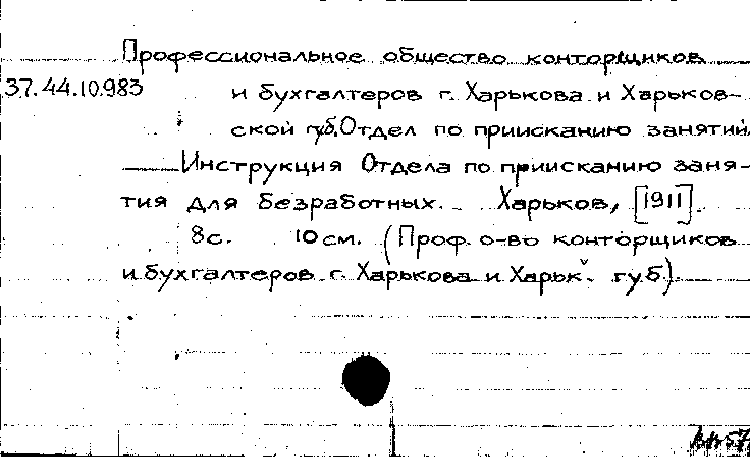 Профессиональное общество конторщиков
37.44.10.983 и бухгалтеров г. Харькова и Харьков-
ской губ. Отдел по приисканию занятий.
Инструкция Отдела по приисканию заня-
тия для безработных. Харьков, [1911].
8с. 10 см. (Проф. о-во конторщиков
и бухгалтеров г. Харькова и Харьк. губ.)